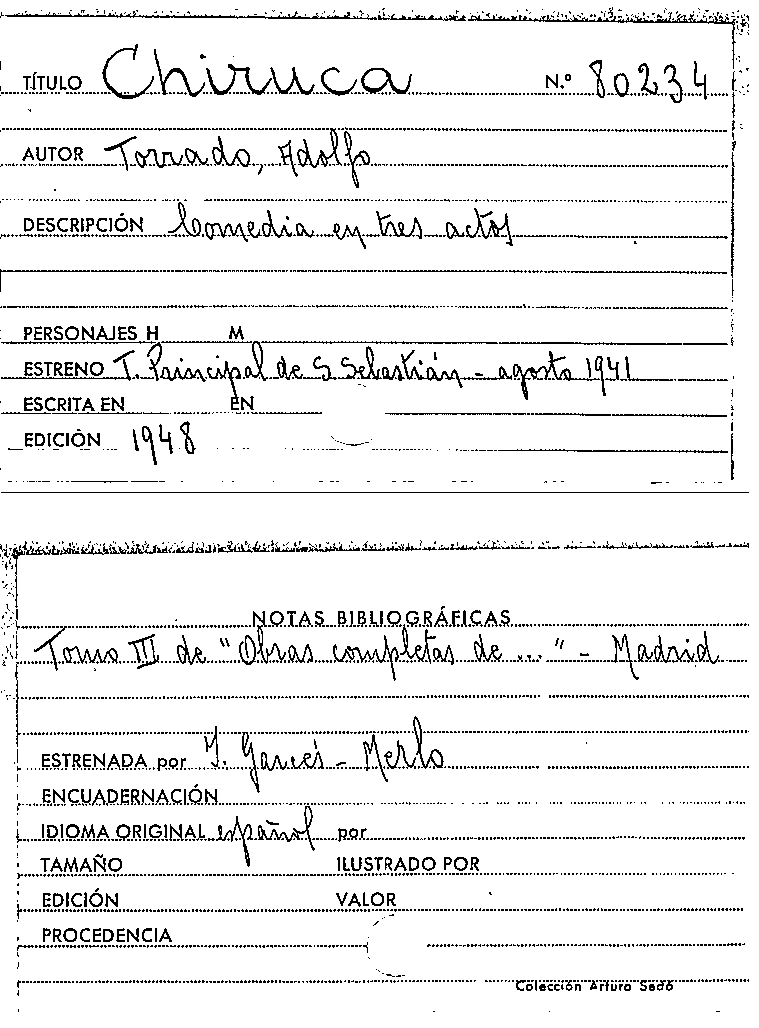 TÍTULO Chiruca N.º 80234
AUTOR Torrado, Adolfo
DESCRIPCIÓN Comedia en tres actos
PERSONAJES H M
ESTRENO T. Principal de S. Sebastián - agosto 1941
ESCRITA EN EN
EDICIÓN 1948
NOTAS BIBLIOGRÁFICAS
Tomo III de "Obras completas de ..." - Madrid
ESTRENADA por I. Garcés - Merlo
ENCUADERNACIÓN
IDIOMA ORIGINAL español por
TAMAÑO ILUSTRADO POR
EDICIÓN VALOR
PROCEDENCIA
Colección Arturo Sedó